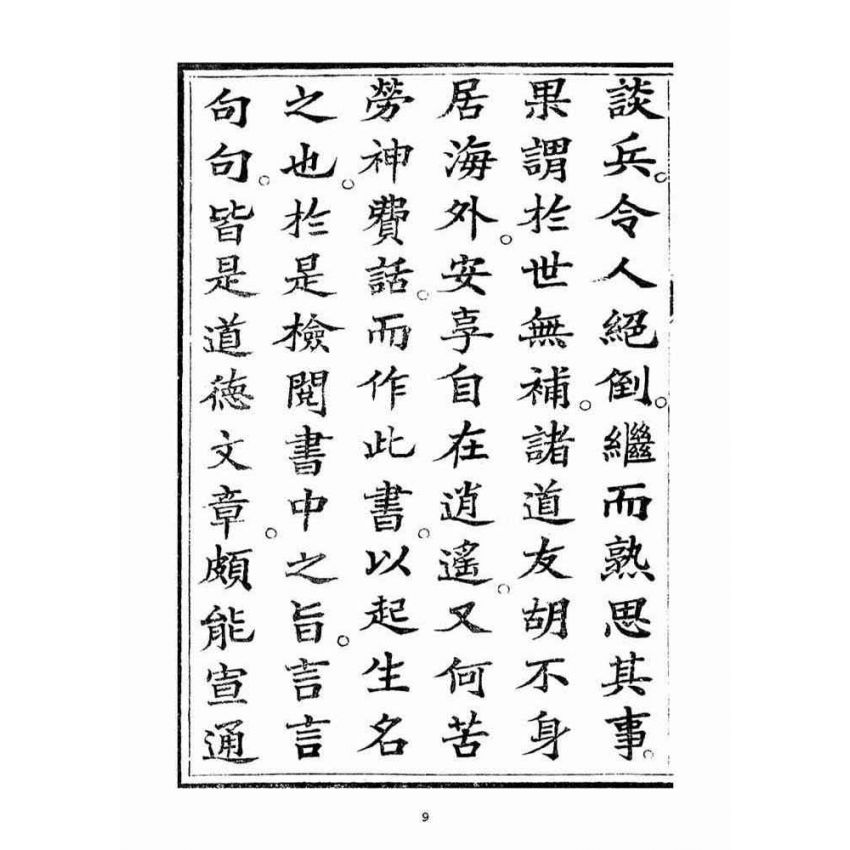 談兵。令人絕倒。繼而熟思其事。
果謂於世無補。諸道友胡不身
居海外。安享自在逍遙。又何苦
勞神費話。而作此書。以起生名
之也。於是檢閱書中之旨。言言
句句。皆是道德文章。頗能宣通
9